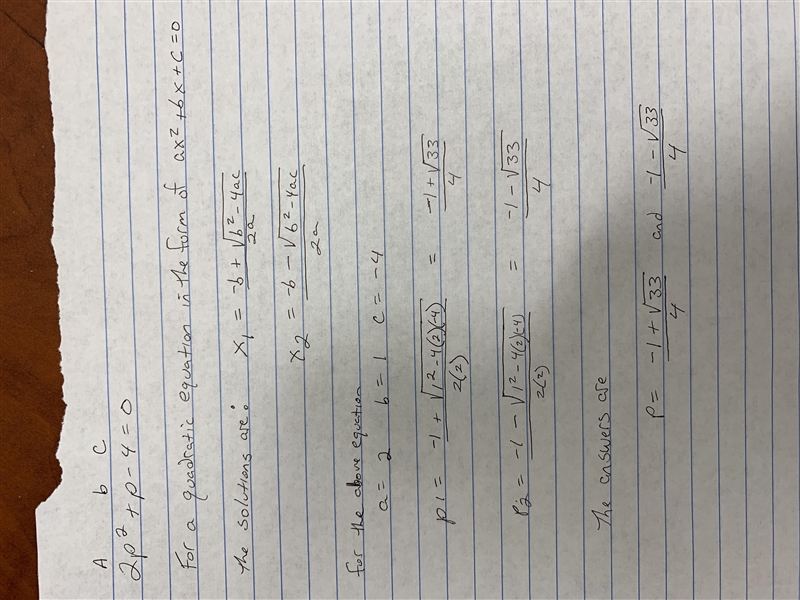 A b c
2p² + p - 4 = 0
For a quadratic equation in the form of ax² + bx + c = 0
the solutions are: x₁ = -b + √b² - 4ac / 2a
x₂ = -b - √b² - 4ac / 2a
for the above equation
a = 2 b = 1 c = -4
p1 = -1 + √1² - 4(2)(-4) / 2(2) = -1 + √33 / 4
p2 = -1 - √1² - 4(2)(-4) / 2(2) = -1 - √33 / 4
The answers are
p = -1 + √33 / 4 and -1 - √33 / 4